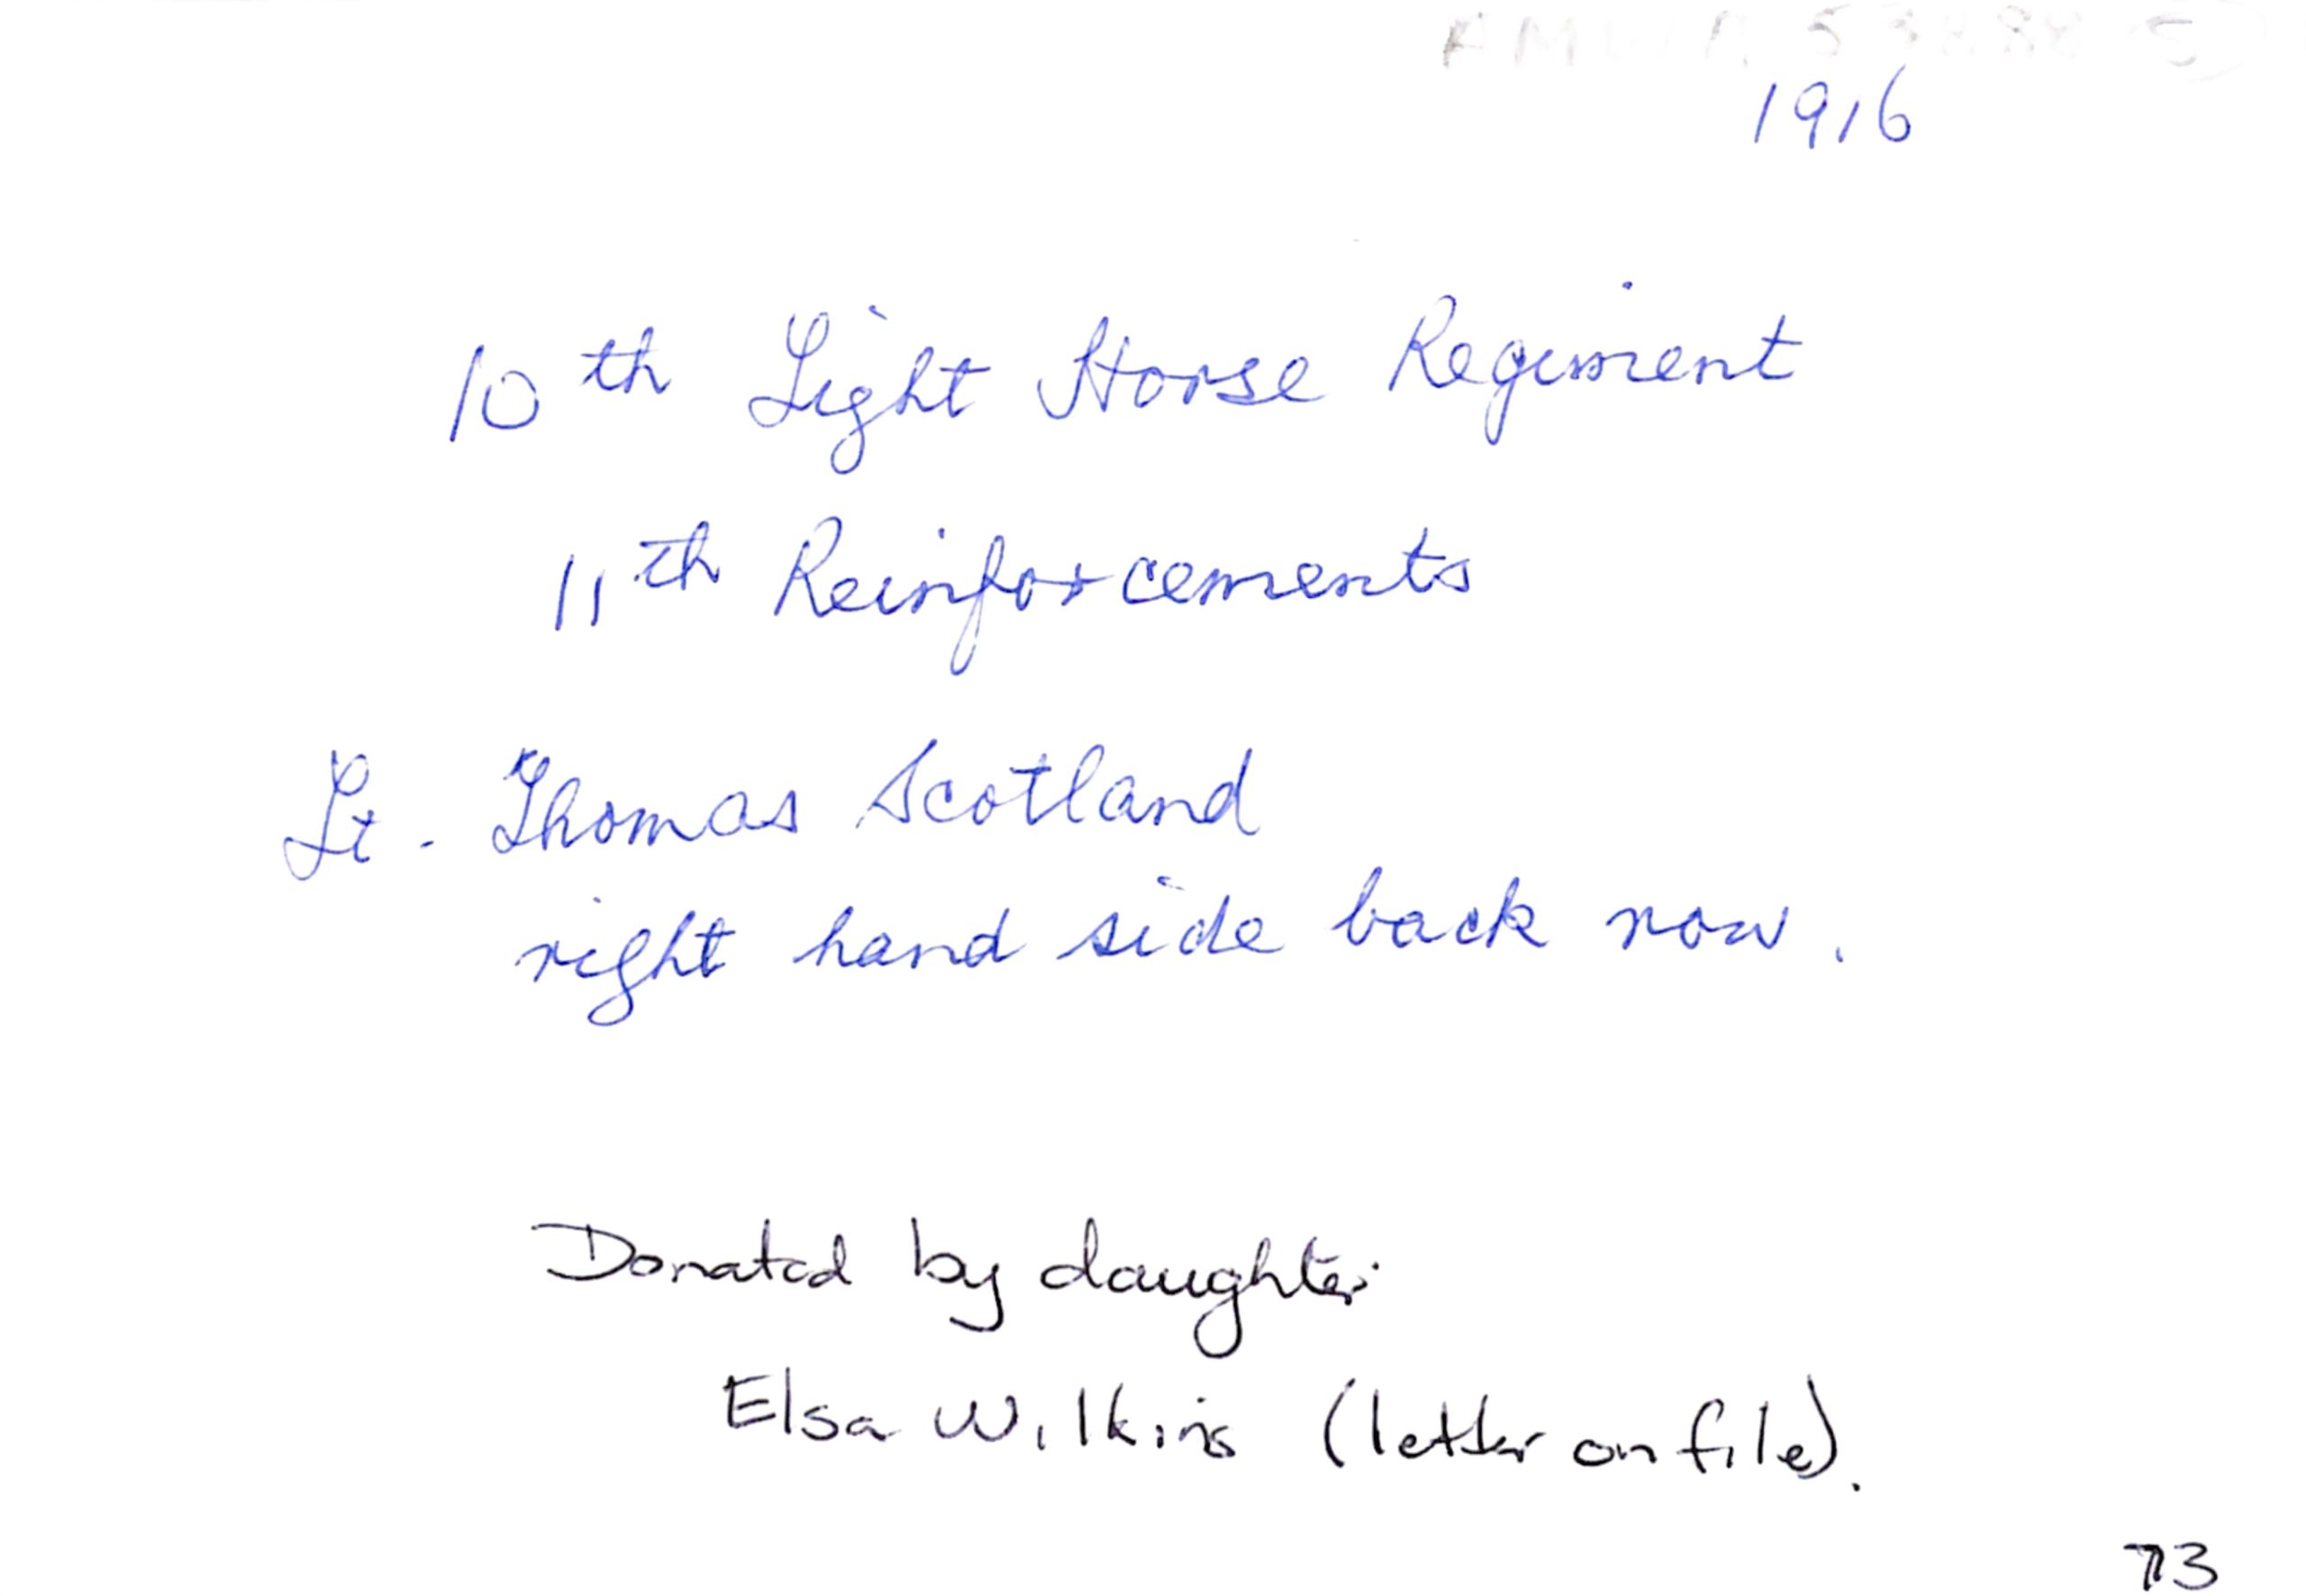 1916
10th Light Horse Regiment
11th Reinforcements
Lt. Thomas Scotland
right hand side back row.
Donated by daughter
Elsa Wilkins (letter on file).
73